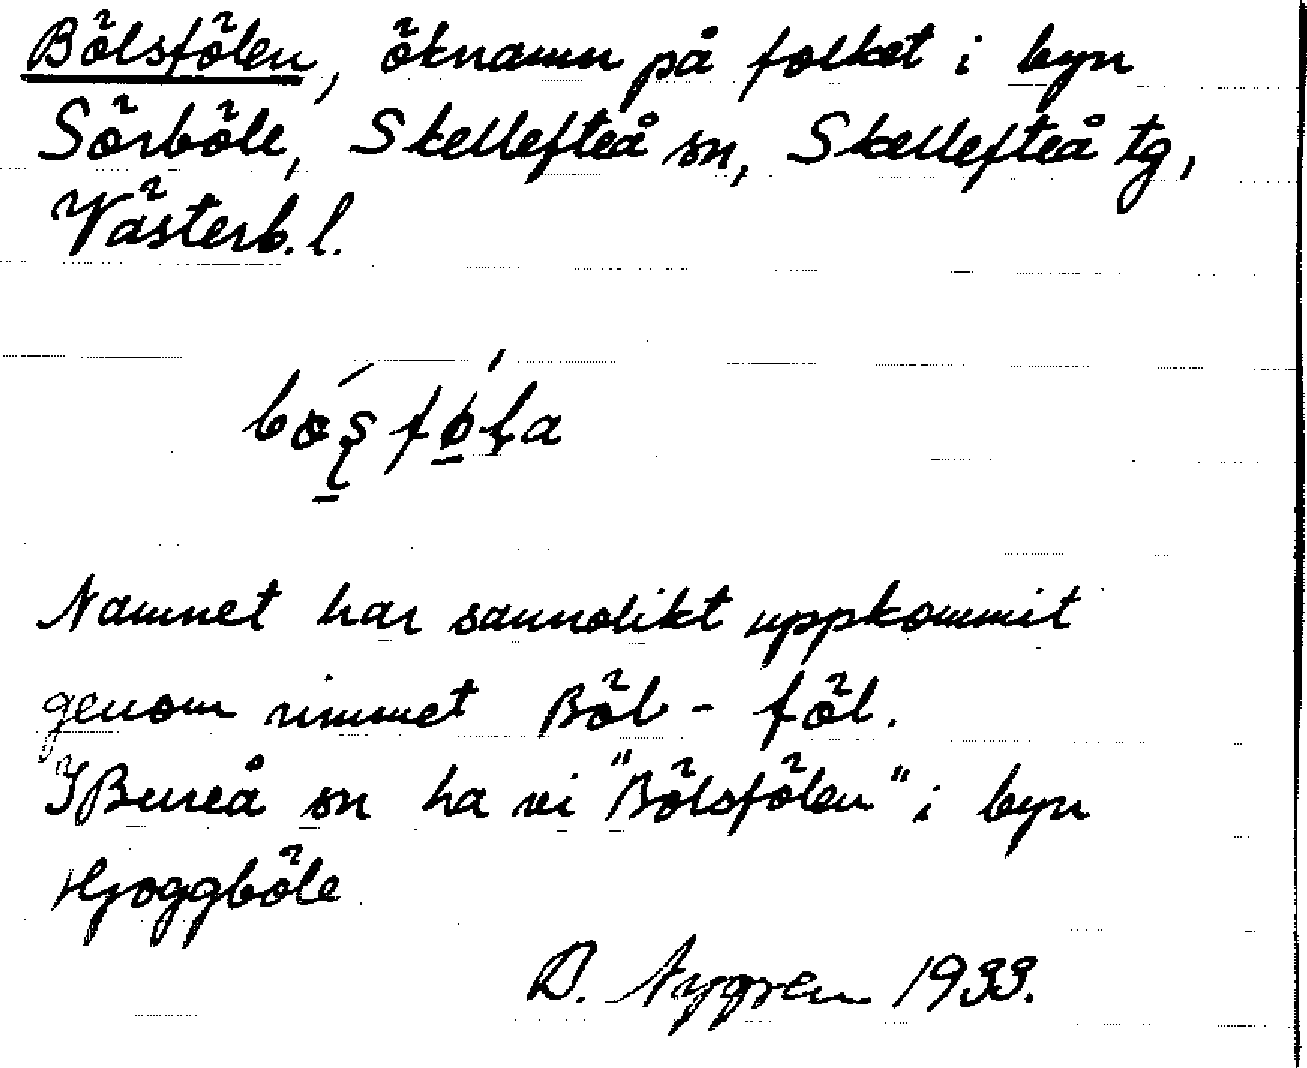 Bölsfölen, öknamn på folket i byn
Sörböle, Skellefteå sn, Skellefteå tg,
Västerb. l.
Namnet har sannolikt uppkommit
genom rimmet Böl - föl.
I Bureå sn ha vi "Bölsfölen" i byn
Hjoggböle
D. Nygren 1933.